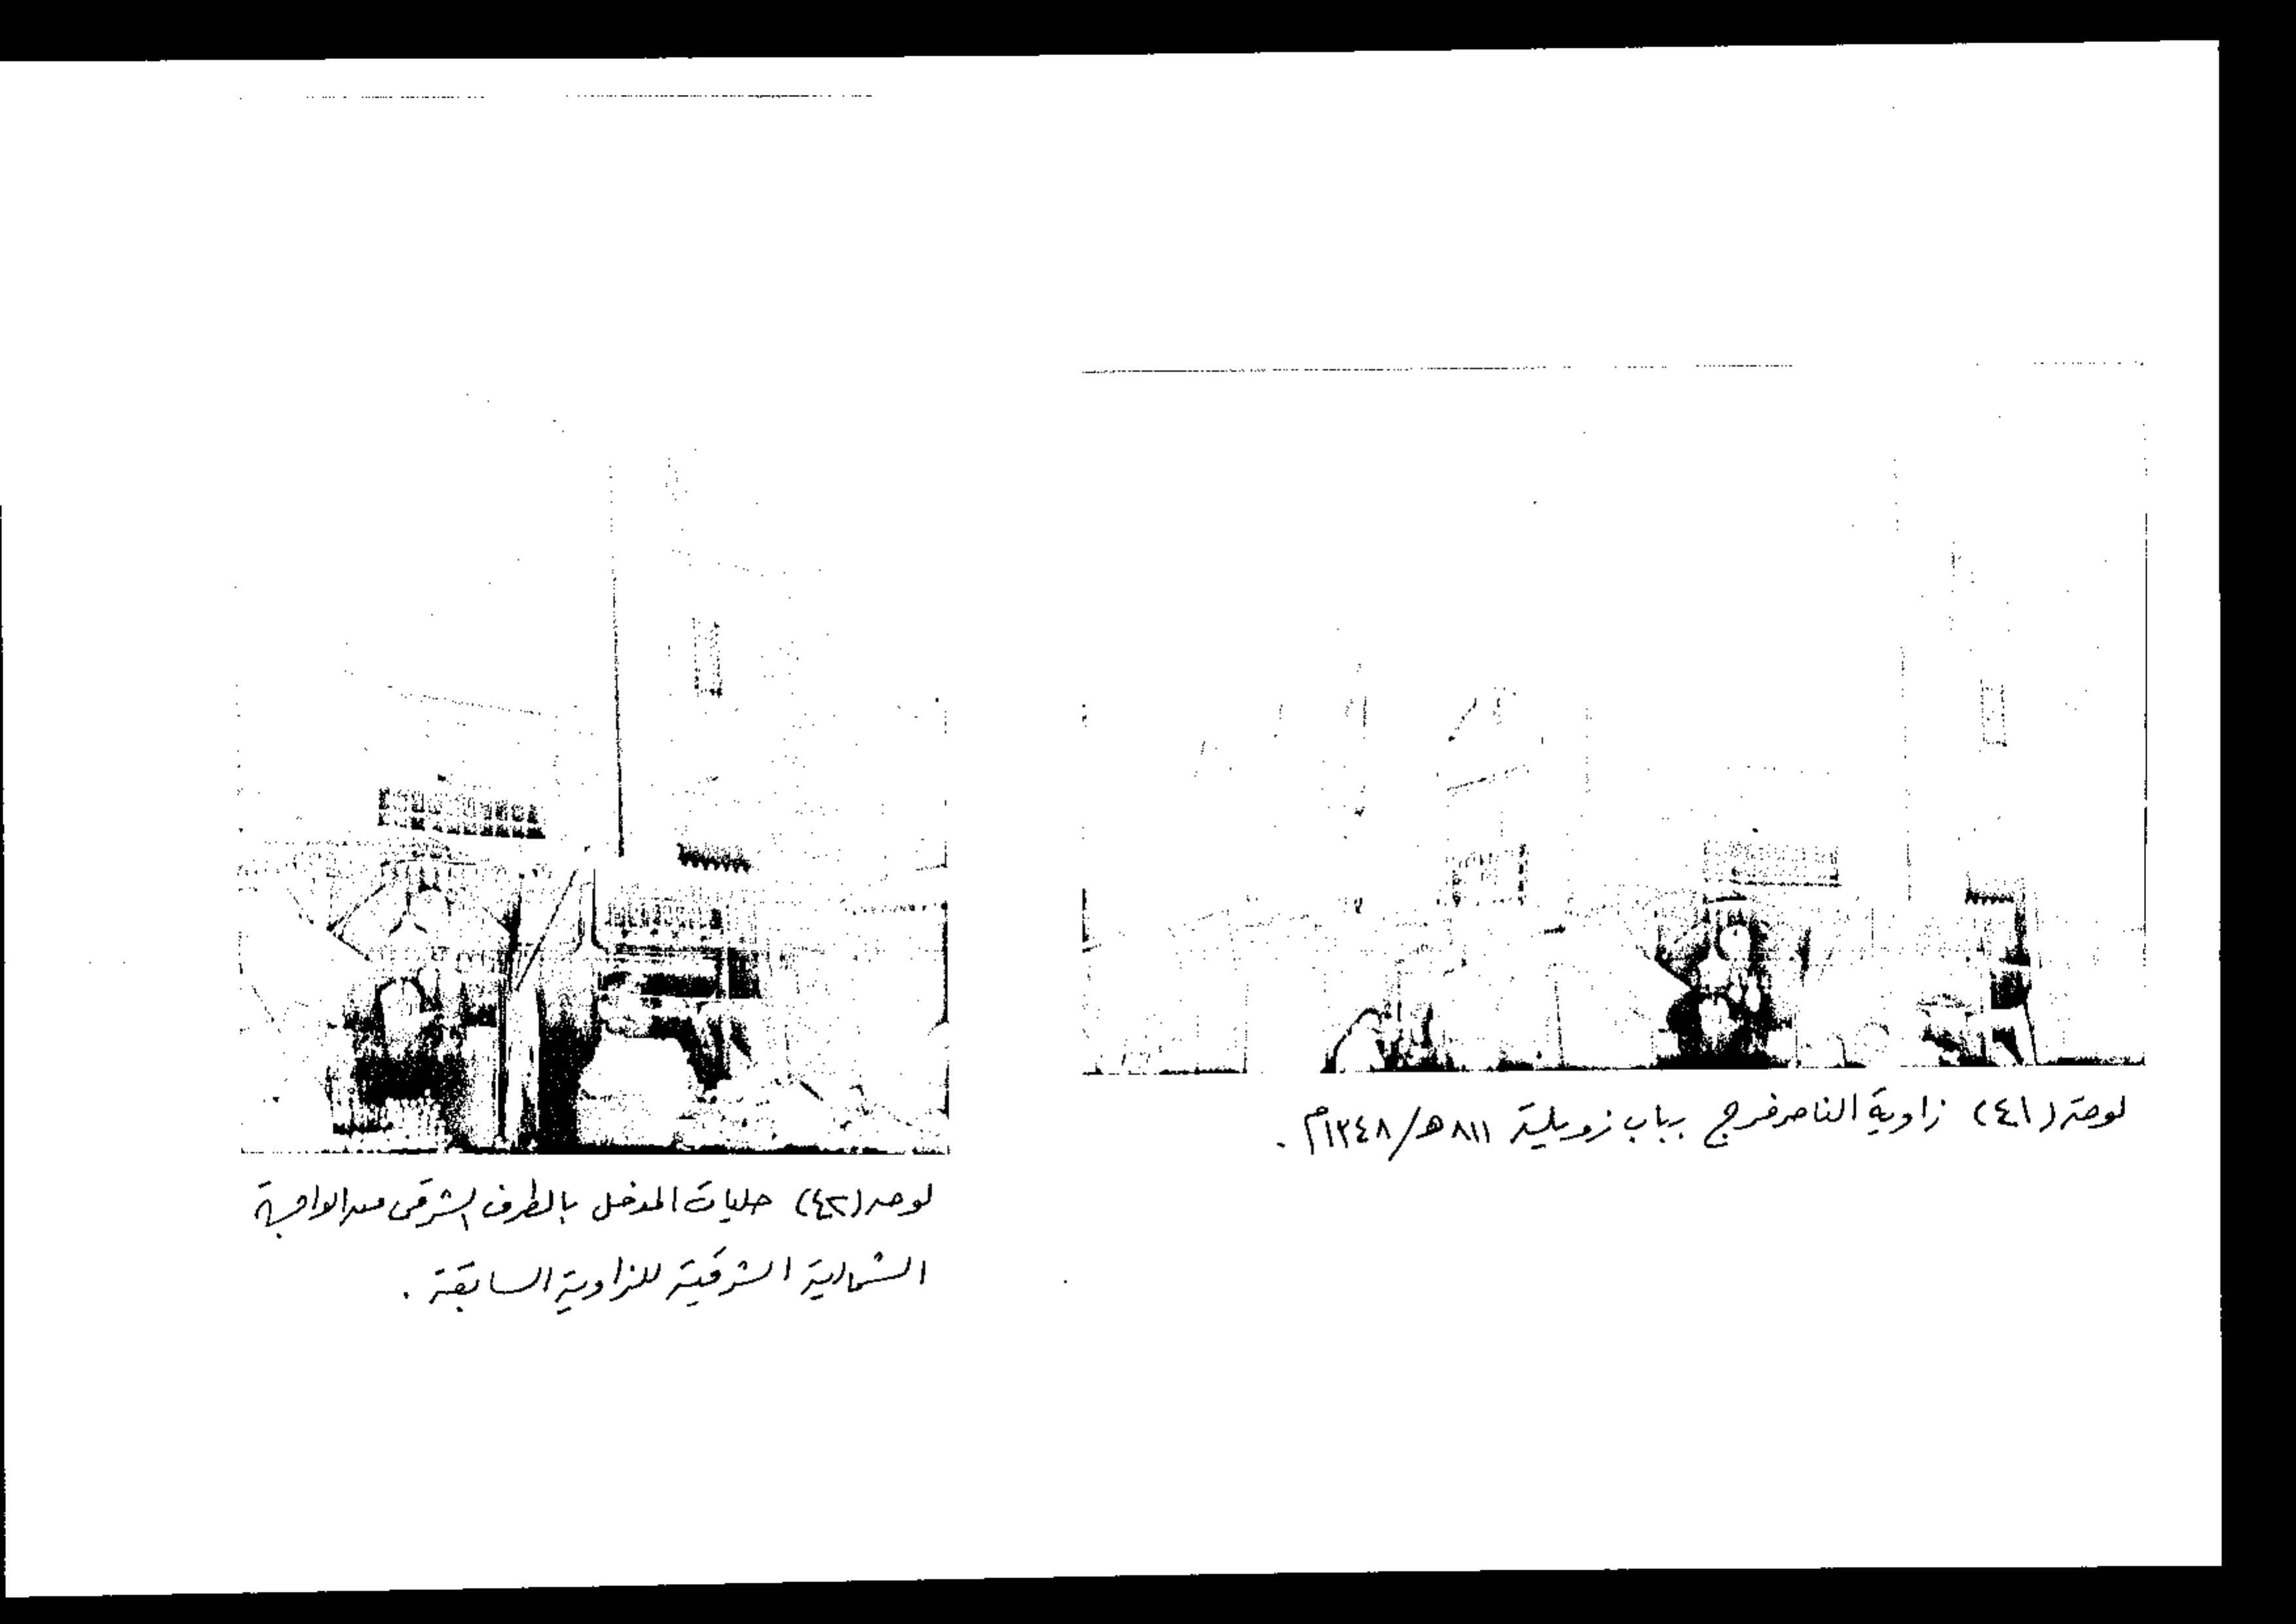 لوحة (٤١) زاوية الناصر فرج بباب زويلة ٨١١ هـ/١٣٤٨م .
لوحة (٤٢) حليات المدخل بالطرف الشرقى من الواجهة
الشمالية الشرقية للزاوية السابقة .